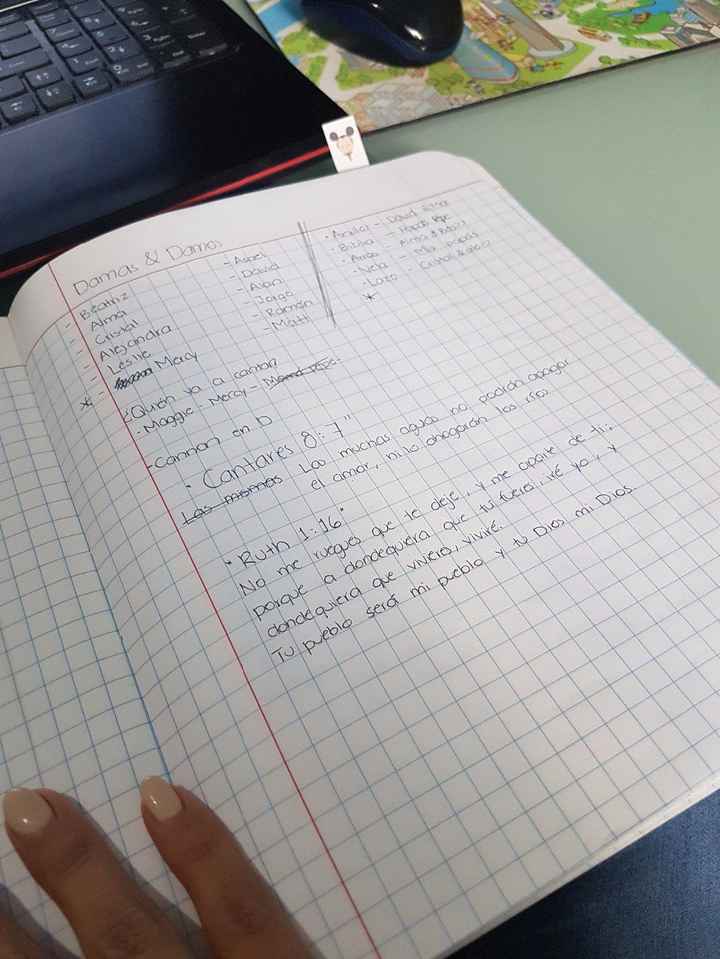 Damas & Damos
- Beatriz
- Alma
- Cristal
- Alejandra
- Leslie
* - Mercy
- Angel
- David
- Alan
- Jorge
- Ramón
- Matti
· Anillos - David
· Biblia -
· Arras - Alma &
· Nelo - Mis papás
· Lazo - Cristal &
*
¿Quién va a cantar?
· Maggie - Mercy -
- Cannon en D
· "Cantares 8:7"
Las momas Las muchas aguas no podrán apagar
el amor, ni lo ahogarán los ríos.
· "Ruth 1:16"
No me ruegues que te deje, y me aparte de ti;
porque a dondequiera que tú fueres, iré yo, y
dondequiera que vivieres, viviré.
Tu pueblo será mi pueblo y tu Dios mi Dios.